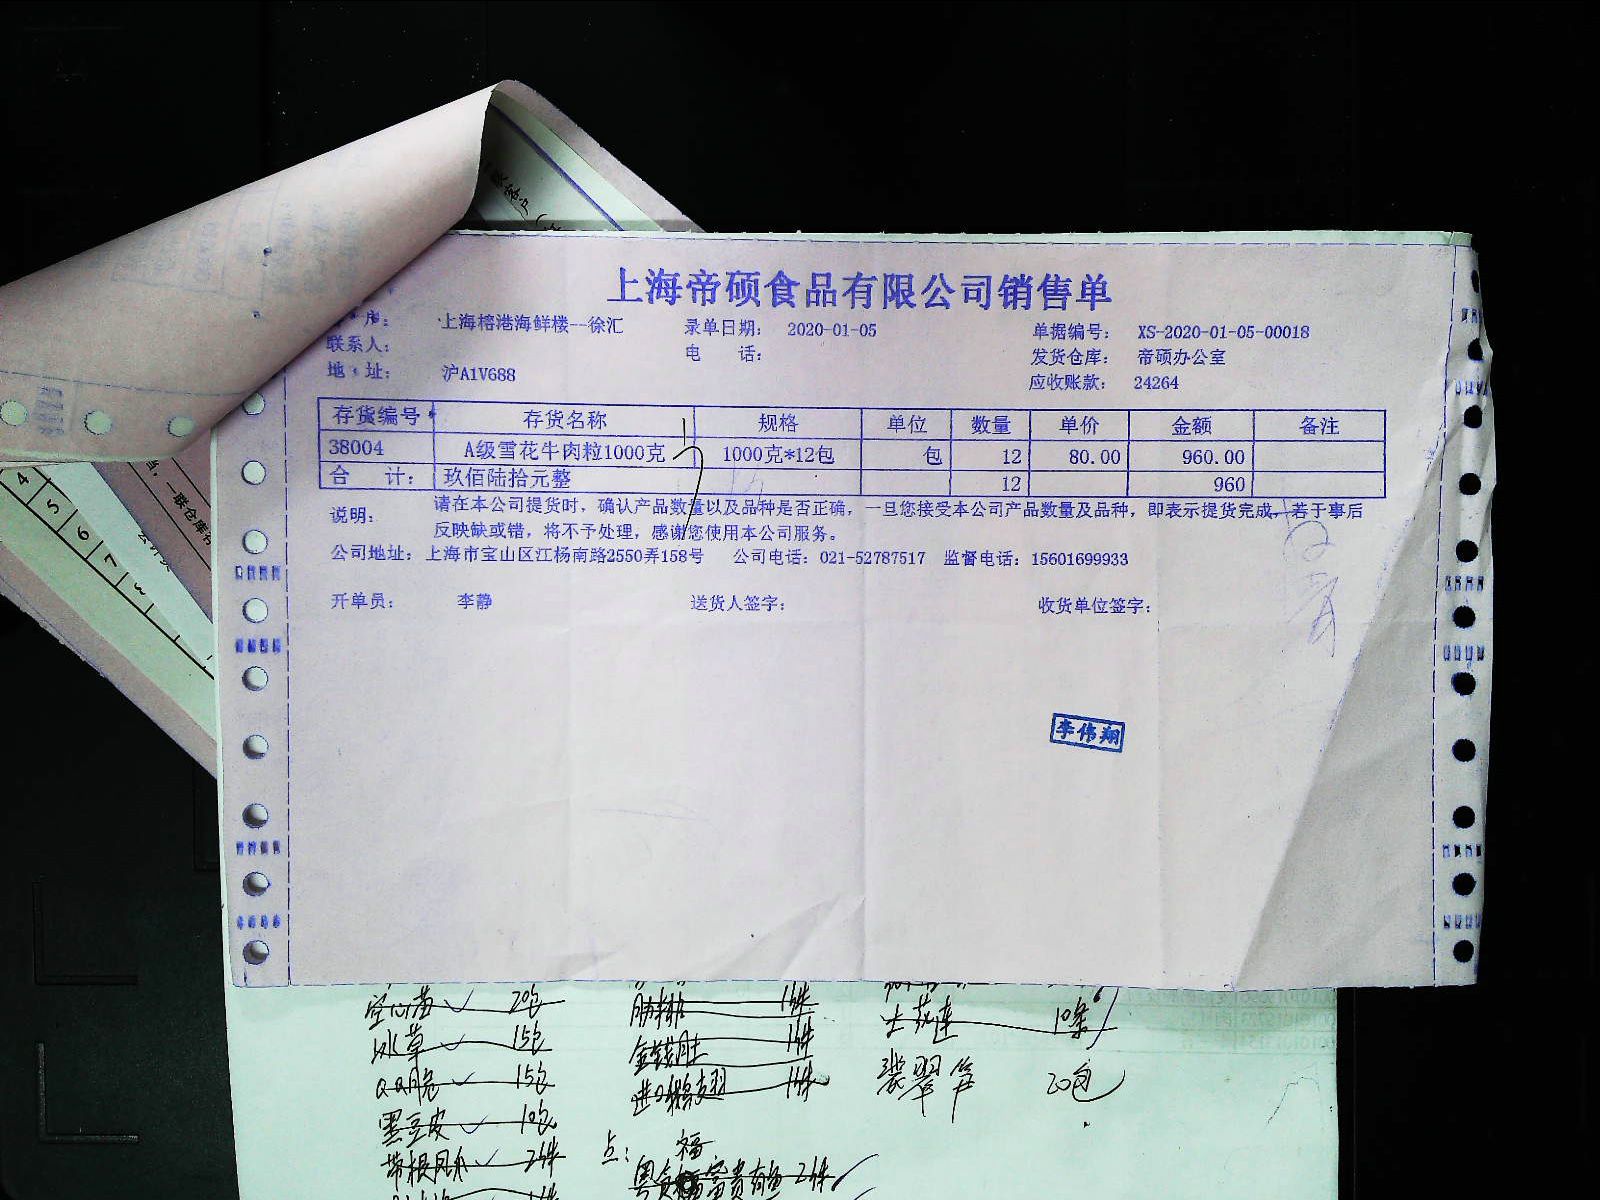 上海帝硕食品有限公司销售单
户: 上海榕港海鲜楼--徐汇 录单日期: 2020-01-05 单据编号: XS-2020-01-05-00018
联系人: 电 话: 发货仓库: 帝硕办公室
地 址: 沪A1V688 应收账款: 24264
存货编号 存货名称 规格 单位 数量 单价 金额 备注
38004 A级雪花牛肉粒1000克 1000克*12包 包 12 80.00 960.00
合 计: 玖佰陆拾元整 12 960
说明: 请在本公司提货时，确认产品数量以及品种是否正确，一旦您接受本公司产品数量及品种，即表示提货完成，若于事后
反映缺或错，将不予处理，感谢您使用本公司服务。
公司地址: 上海市宝山区江杨南路2550弄158号 公司电话: 021-52787517 监督电话: 15601699933
开单员: 李静 送货人签字: 收货单位签字:
李伟翔
4
5
6
7
空心苗 20包 1件 土花莲 10条
冰草 15包 金钱肚 1件 20包
15包 1件
黑豆皮 10包
2件 点: 福
富贵有鱼 2件